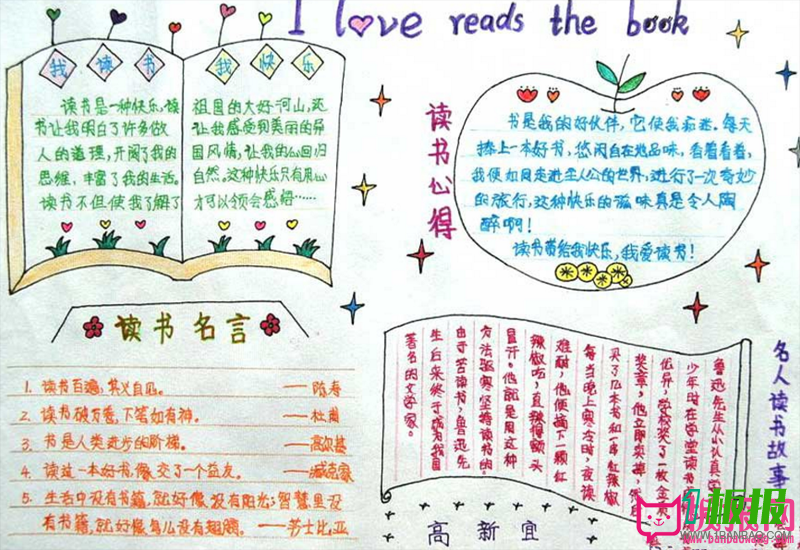 I love reads the book
我读书 我快乐
读书是一种快乐,读
书让我明白了许多做
人的道理,开阔了我的
思维,丰富了我的生活。
读书不但使我了解了
祖国的大好河山,还
让我感受到美丽的异
国风情,让我的心回归
自然。这种快乐只有用心
才可以领会感悟……
读书心得
书是我的好伙伴,它使我痴迷。每天
捧上一本好书,悠闲自在地品味,看着看着,
我便如同走进主人公的世界,进行了一次奇妙
的旅行,这种快乐的滋味真是令人陶
醉啊!
读书带给我快乐,我爱读书!
读书名言
1. 读书百遍,其义自见。 ——陈寿
2. 读书破万卷,下笔如有神。 ——杜甫
3. 书是人类进步的阶梯。 ——高尔基
4. 读过一本好书,像交了一个益友。 ——臧克家
5. 生活中没有书籍,就好像没有阳光;智慧里没
有书籍,就好像鸟儿没有翅膀。 ——莎士比亚
名人读书故事
鲁迅先生从小认真
少年时在学堂读书
优异,学校奖了一枚金
奖章,他立即卖掉,
买了几本书和一串红辣椒
每当晚上寒冷时,夜读
难耐,他便摘下一颗红
辣椒吃,直辣得额头
冒汗。他就是用这种
方法驱寒坚持读书的。
由于苦读书,鲁迅先
生后来终于成为我国
著名的文学家。
高新宜
1板报
www.1banbao.com